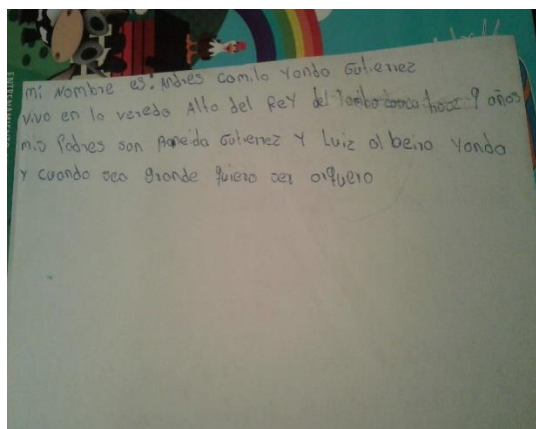 mi Nombre es: Andres camilo Yondo Gutierrez
vivo en la vereda Alto del Rey del Tambo cauca hace 9 años
mis Padres son Gutierrez Y Luiz albeiro Yondo
Y cuando sea grande quiero ser arquero